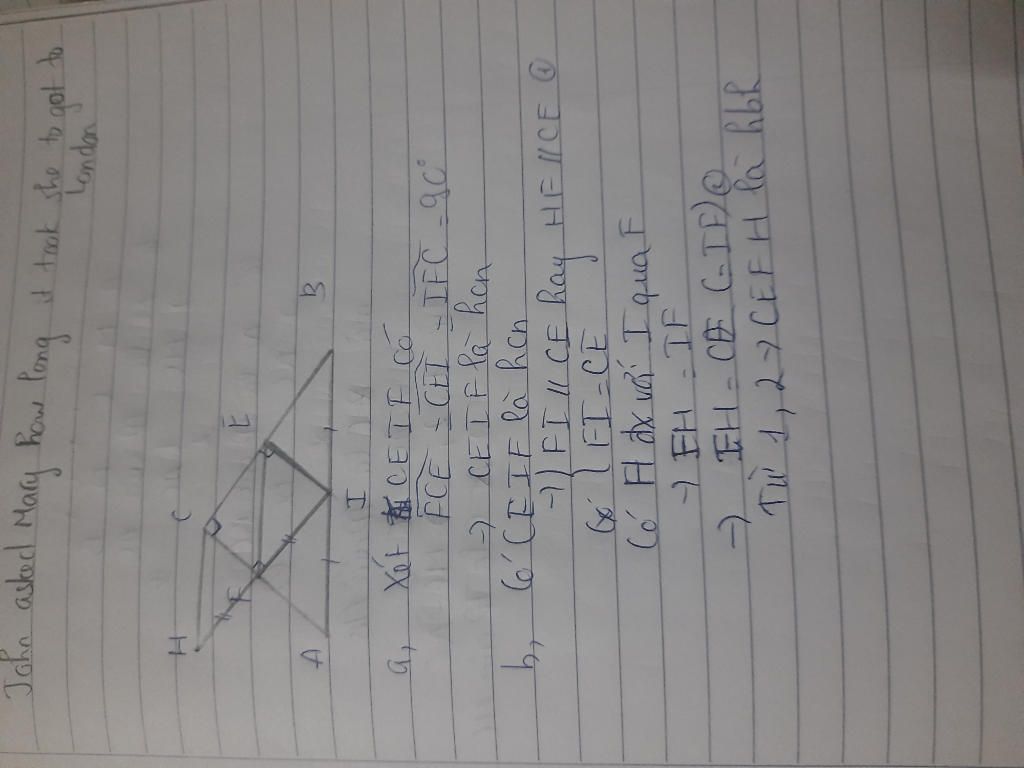 John asked Mary how long it took she to got to
London
H
C
E
F
A
I
B
a, Xét CEIF có
FCE = CEI = IFC = 90°
→ CEIF là hcn
b, Có CEIF là hcn
→ FI // CE hay HF // CE ①
FI = CE
Có H đx với I qua F
→ FH = IF
→ FH = CE (=IF) ②
Từ 1, 2 → CEFH là hbh